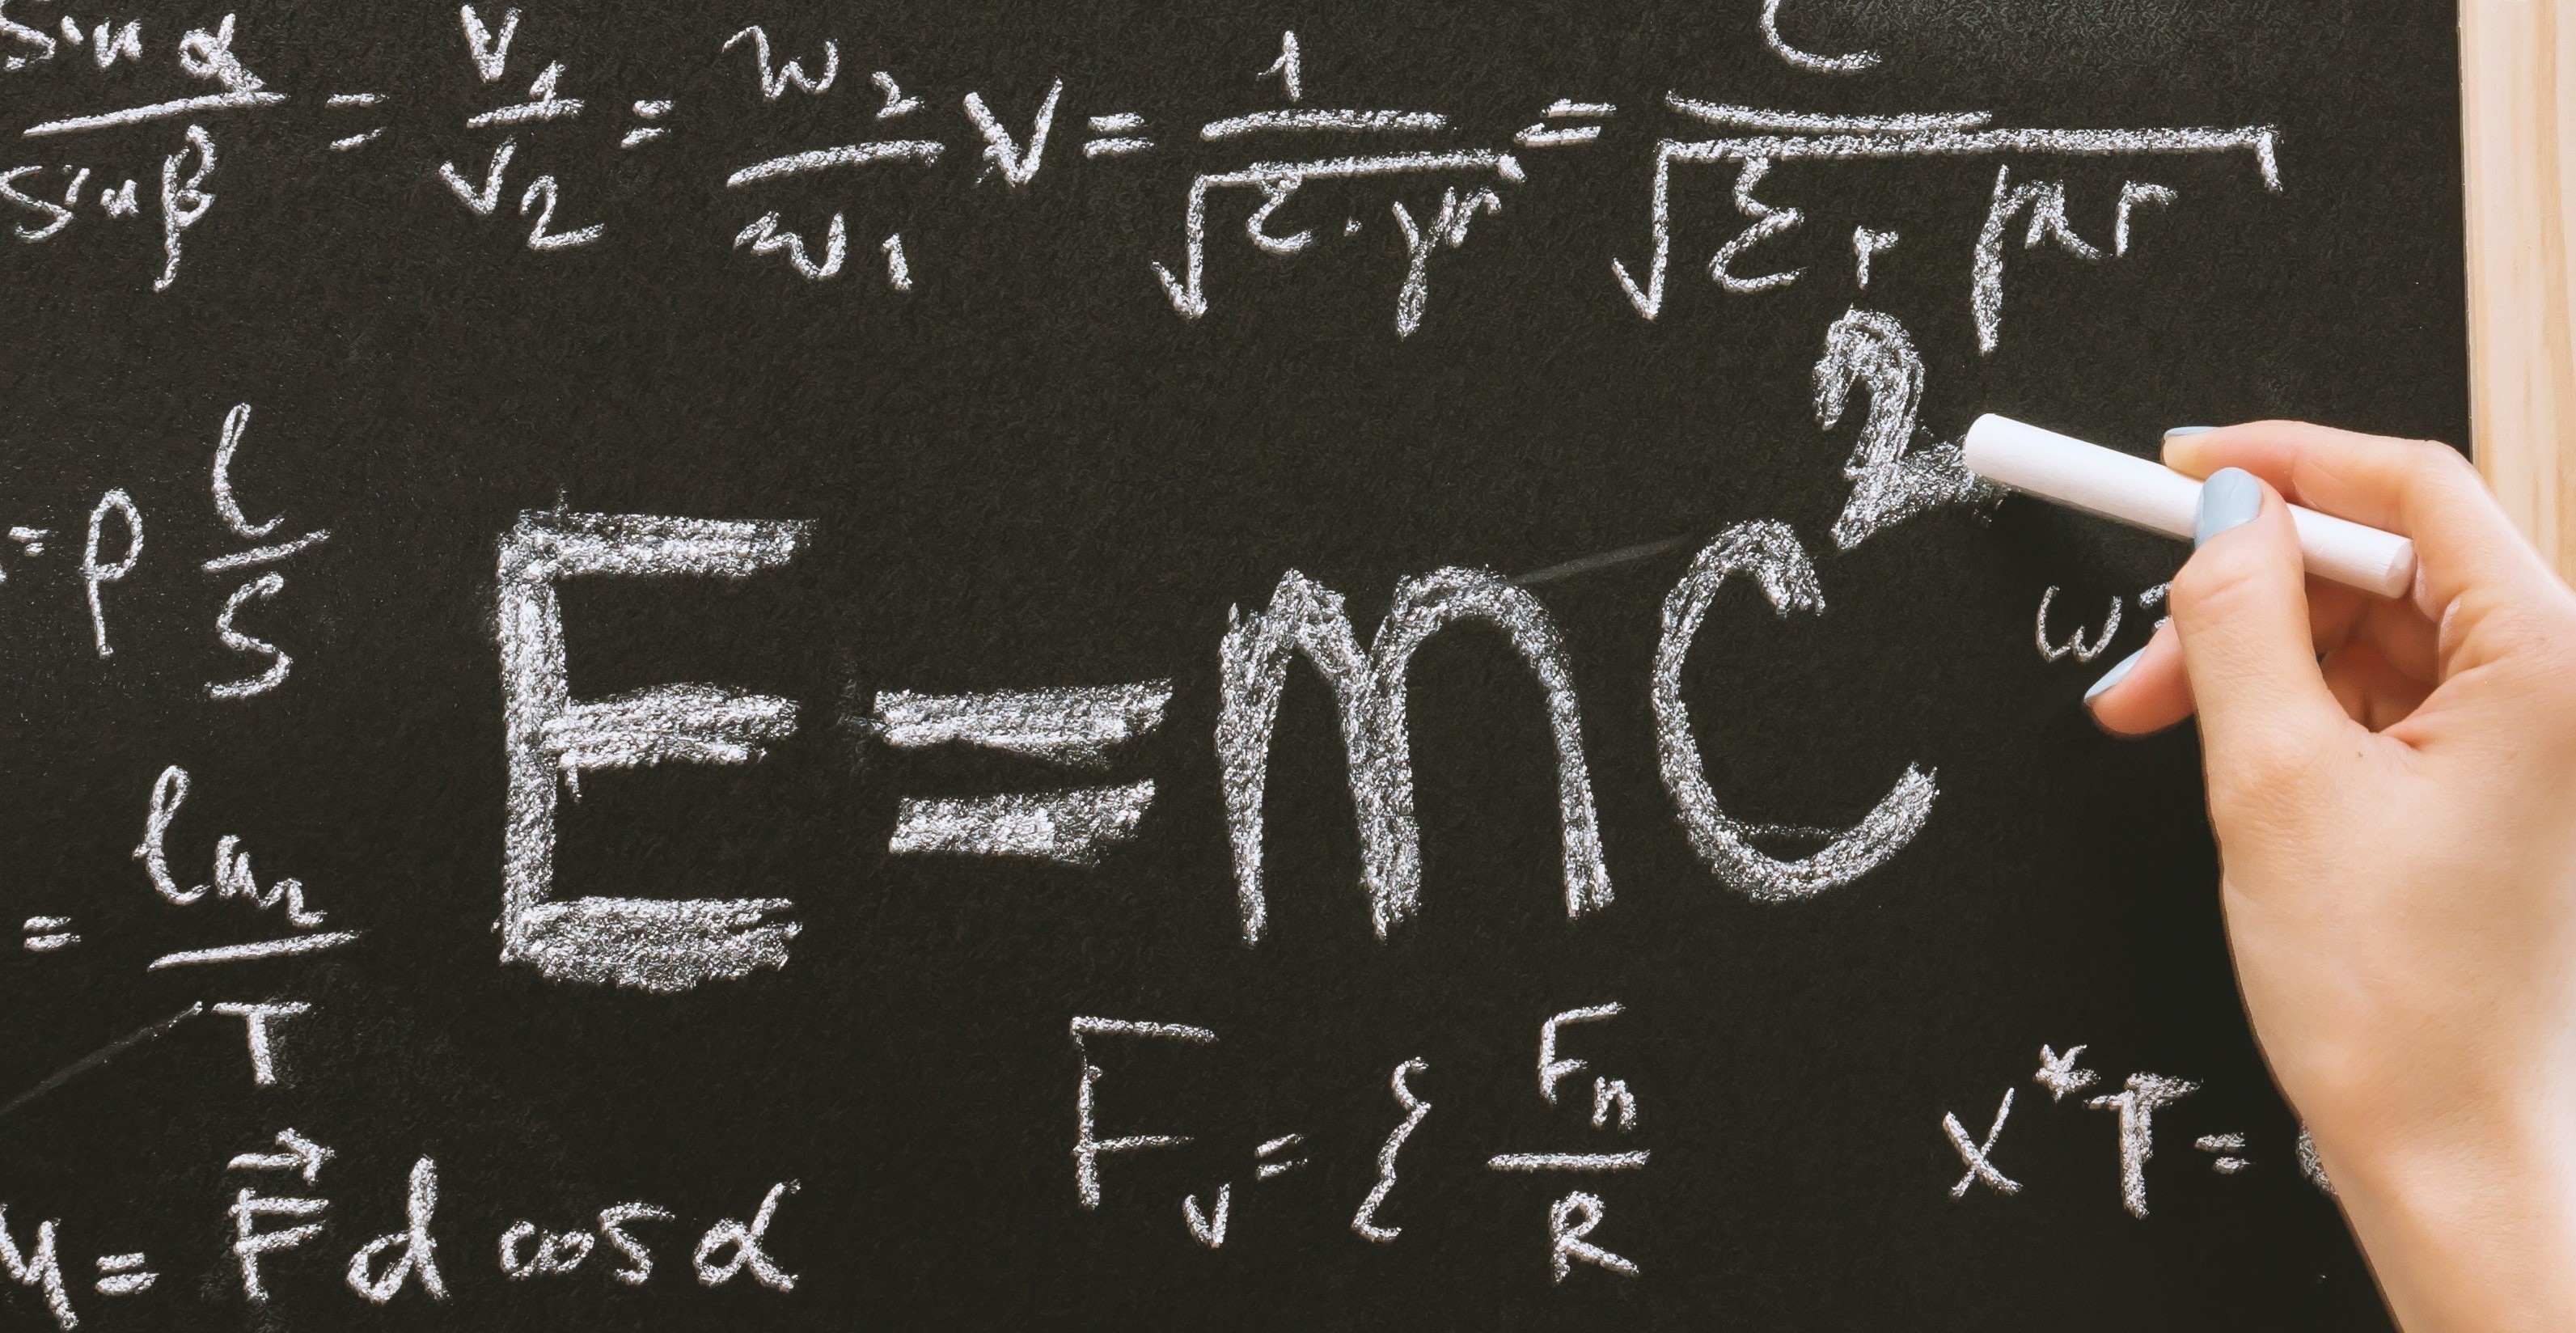 sin α / sin β = v1 / v2 = w2 / w1 V = 1 / √ε·μ = c / √εr μr
= ρ l / S
E=mc²
w
= ℓar / T
Fv = ξ Fn / R
x* T =
y = F⃗ d cos α